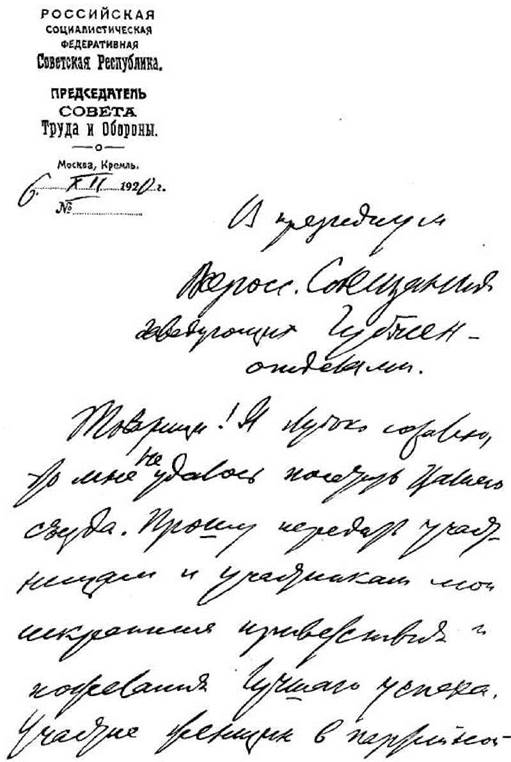 РОССИЙСКАЯ
СОЦИАЛИСТИЧЕСКАЯ
ФЕДЕРАТИВНАЯ
Советская Республика.
ПРЕДСЕДАТЕЛЬ
СОВЕТА
Труда и Обороны.
Москва, Кремль.
6. XII 1920 г.
№
В президиум
Всеросс. Совещания
заведующих Губжен-
отделами.
Товарищи! Я глубоко сожалею,
что мне не удалось посетить Вашего
съезда. Прошу передать участ-
ницам и участникам мои
искренние приветствия и
пожелания лучшего успеха.
Участие женщин в партийной